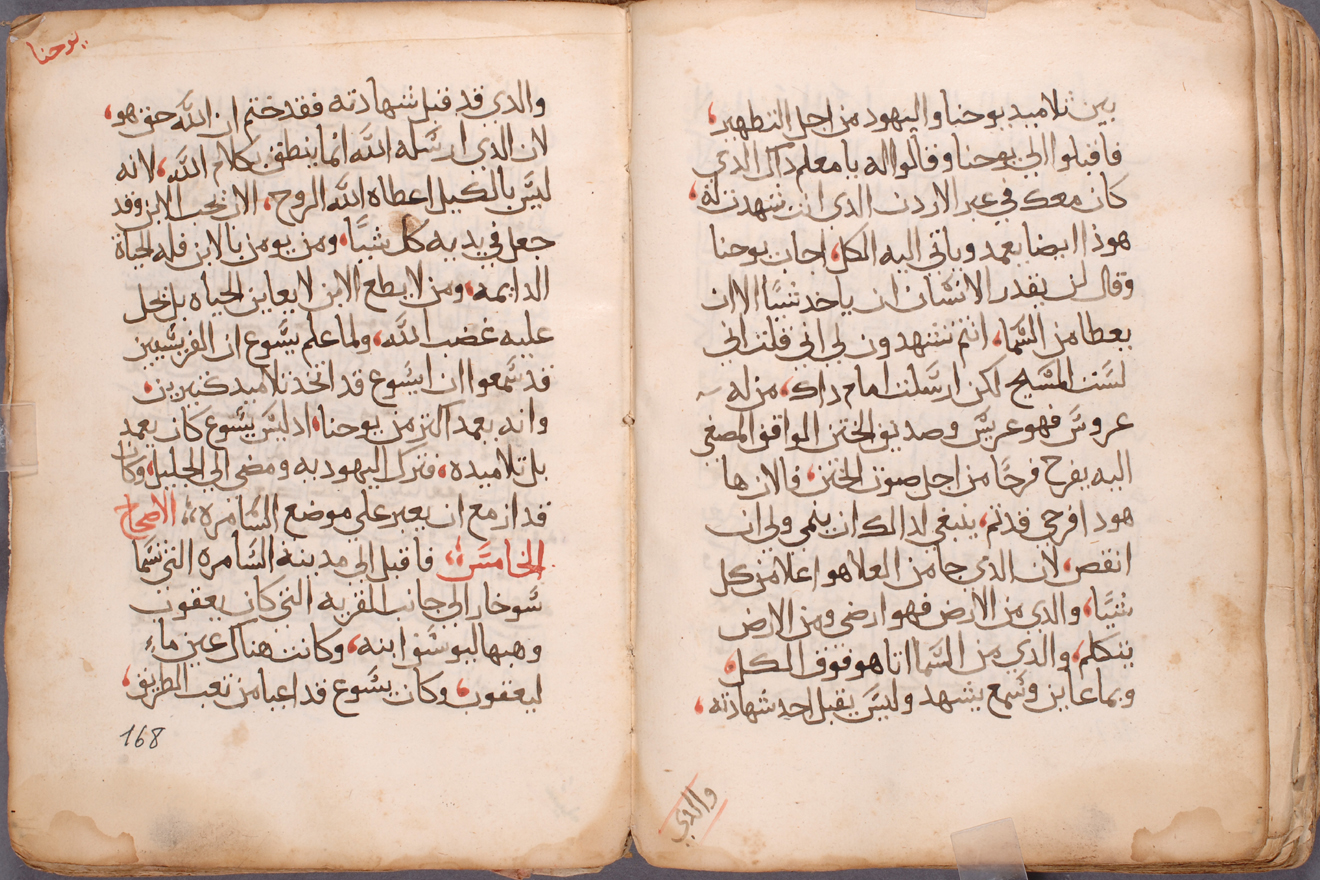 بين تلاميد يوحنا واليهود من اجل التطهير،
فاقبلوا الي يوحنا وقالوا له يا معلم داك الدي
كان معك في عبر الاردن الدي انت شهدت له،
هودا ايضا يعمد وياتي اليه الكل، اجاب يوحنا
وقال لن يقدر الانسان ان ياخد شيًا الا ان
يعطا من السما، انتم تشهدون لي اني قلت اني
لست المسيح لكن ارسلت امام داك، من له
عروس فهو عريس وصديق الختن الواقف المصغي
اليه يفرح فرحًا من اجل صوت الختن، فالان ها
هودا فرحي قدتم، ينبغي لدالك ان ينمي ولي ان
انقص، لان الدي جا من العلا هو اعلا من كل
شيًا، والدي من الارض فهو ارضي ومن الارض
يتكلم، والدي من السما اتا هو فوق الكل،
وبما عاين وسمع يشهد وليس يقبل احد شهادته،
والدي
يوحنا
والدي قد قبل شهادته فقد ختم ان الله حق هو،
لان الدي ارسله الله انما ينطق بكلام الله، لانه
ليس بالكيل اعطاه الله الروح، الاب يحب الابن وقد
جعل في يديه كل شيًا، ومن يومن بالابن فله الحياة
الدايمه، ومن لا يطع الابن لا يعاين الحياه بل يحل
عليه غضب الله، ولما علم يسوع ان الفريسيين
قد سمعوا ان ايسوع قد اتخد تلاميد كثيرين،
وانه يعمد اكتر من يوحنا، اد ليس يسوع كان يعمد
بل تلاميده، فترك اليهوديه ومضي الي الجليل، وكان
قد ازمع ان يعبر علي موضع السامره، الاصحاح
الخامس، فاقبل الي مدينة السامره التي تسما
سوخار الي جانب القريه التي كان يعقوب
وهبها ليوسف ابنه، وكانت هناك عين ماء
ليعقوب، وكان يسوع قد اعيا من تعب الطريق،
168